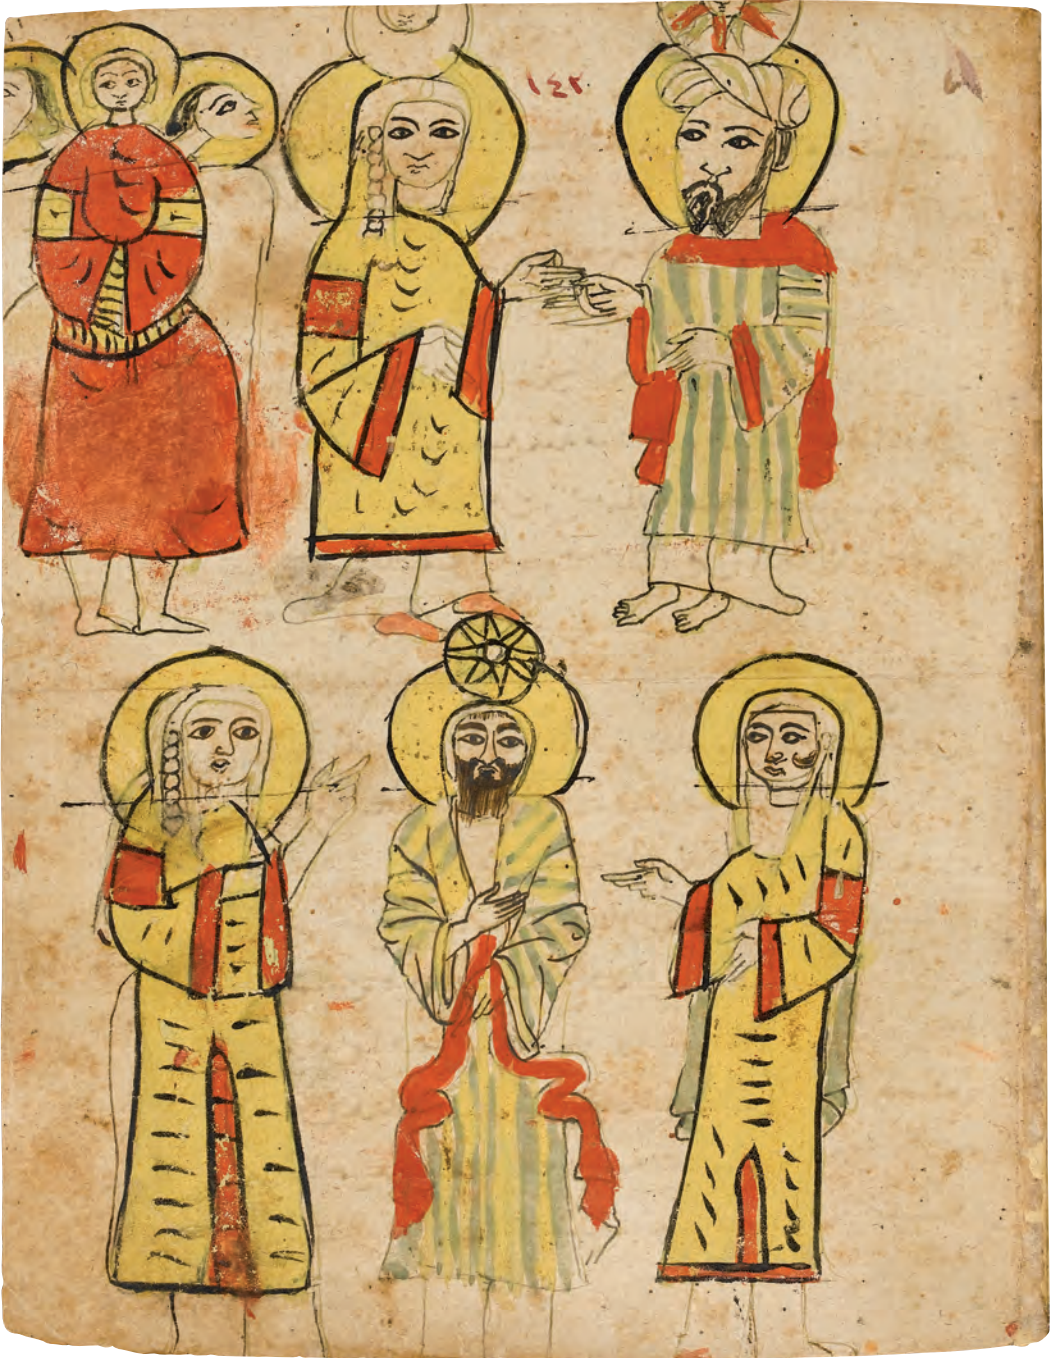 ١٤٢